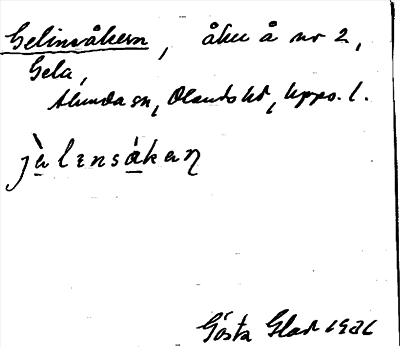 Gelinsåkern, åker å nr 2,
Gela,
Alunda sn, Olands hd, Upps. l.
jὰlensάkaɳ
Gösta Glad